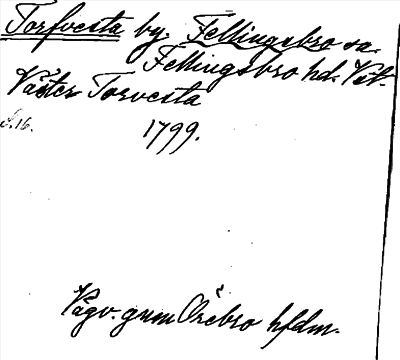 Torfvesta by. Fellingsbro sn.
Fellingsbro hd. Vstm.
Väster Torvesta
S. 16.
1799.
Vägv. gnm Örebro hfdm.